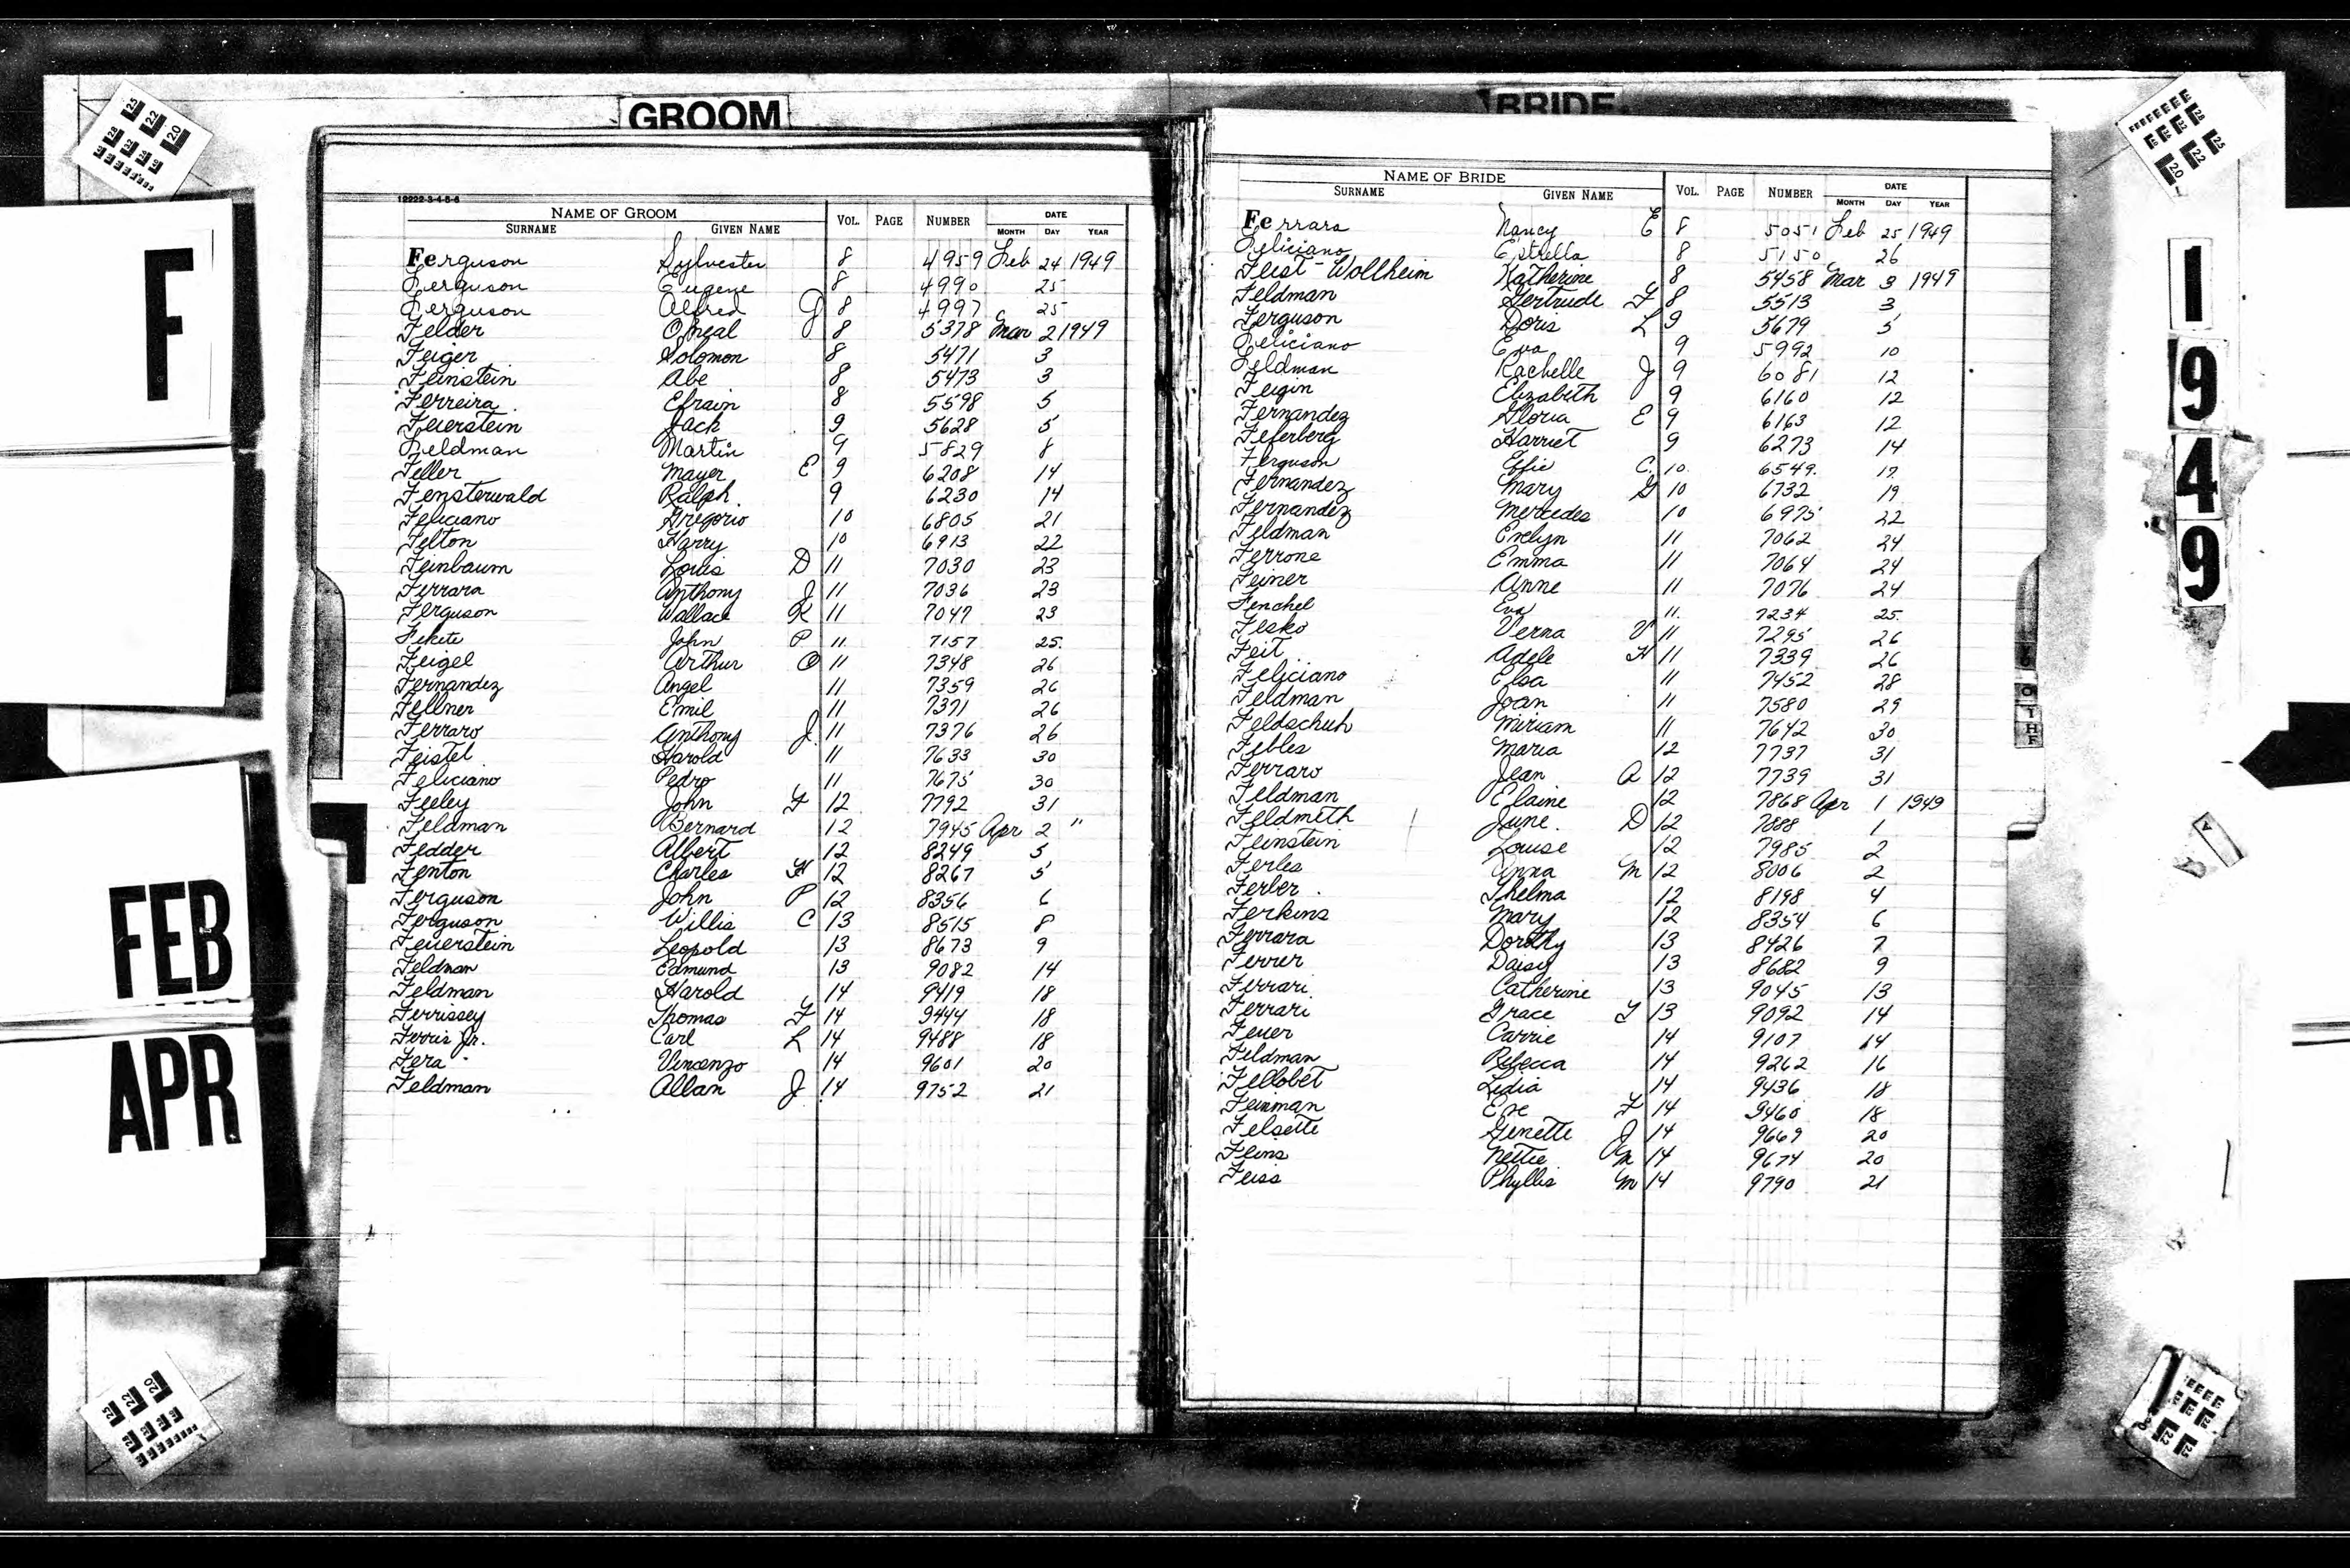 GROOM
12222-3-4-5-6
NAME OF GROOM VOL. PAGE NUMBER DATE
SURNAME GIVEN NAME MONTH DAY YEAR
Ferguson Sylvester 8 4959 Feb 24 1949
Ferguson Eugene 8 4990 25
Ferguson Alfred J 8 4997 25
Felder O'Neal 8 5378 Mar 2 1949
Feiger Solomon 8 5471 3
Feinstein Abe 8 5473 3
Ferreira Efrain 8 5598 5
Feuerstein Jack 9 5628 5
Feldman Martin 9 5829 8
Feller Mayer E 9 6208 14
Fensterwald Ralph 9 6230 14
Feliciano Gregorio 10 6805 21
Felton Harry 10 6913 22
Feinbaum Louis D 11 7030 23
Ferrara Anthony J 11 7036 23
Ferguson Wallace R 11 7047 23
Fekete John P 11 7157 25
Feigel Arthur O 11 7348 26
Fernandez Angel 11 7359 26
Fellner Emil 11 7371 26
Ferraro Anthony J. 11 7376 26
Feistel Harold 11 7633 30
Feliciano Pedro 11 7675 30
Feeley John F 12 7792 31
Feldman Bernard 12 7945 Apr 2 "
Fedder Albert 12 8249 5
Fenton Charles H 12 8267 5
Ferguson John P 12 8356 6
Ferguson Willis C 13 8515 8
Feuerstein Leopold 13 8673 9
Feldman Edmund 13 9082 14
Feldman Harold 14 9419 18
Ferrissey Thomas F 14 9444 18
Ferris Jr. Carl L 14 9488 18
Fera Vincenzo 14 9601 20
Feldman Allan J 14 9752 21
BRIDE
NAME OF BRIDE VOL. PAGE NUMBER DATE
SURNAME GIVEN NAME MONTH DAY YEAR
Ferrara Nancy E 8 5051 Feb 25 1949
Feliciano Estrella 8 5150 26
Feist-Wollheim Katherine 8 5458 Mar 3 1949
Feldman Gertrude F 8 5513 3
Ferguson Doris L 9 5679 5
Feliciano Eva 9 5992 10
Feldman Rachelle J 9 6081 12
Feigin Elizabeth 9 6160 12
Fernandez Gloria E 9 6163 12
Feferberg Harriet 9 6273 14
Ferguson Effie C. 10 6549 17
Fernandez Mary G 10 6732 19
Fernandez Mercedes 10 6975 22
Feldman Evelyn 11 7062 24
Ferrone Emma 11 7064 24
Feiner Anne 11 7076 24
Fenchel Eva 11 7234 25
Fesko Verna V 11 7295 26
Feit Adele H 11 7339 26
Feliciano Elsa 11 7452 28
Feldman Joan 11 7580 29
Feldschuh Miriam 11 7642 30
Febles Maria 12 7737 31
Ferraro Jean A 12 7739 31
Feldman Elaine 12 7868 Apr 1 1949
Feldmeth June D 12 7888 1
Feinstein Louise 12 7985 2
Ferles Anna M 12 8006 2
Ferber Thelma 12 8198 4
Ferkins Mary 12 8354 6
Ferrara Dorothy 13 8426 7
Ferrer Daisy 13 8682 9
Ferrari Catherine 13 9045 13
Ferrari Grace Y 13 9092 14
Feuer Carrie 14 9107 14
Feldman Rebecca 14 9262 16
Fellobet Lidia 14 9436 18
Feinman Eve F 14 9460 18
Felsette Genette J 14 9669 20
Feins Nettie M 14 9674 20
Feiss Phyllis M 14 9790 21
F
FEB
APR
1
9
4
9